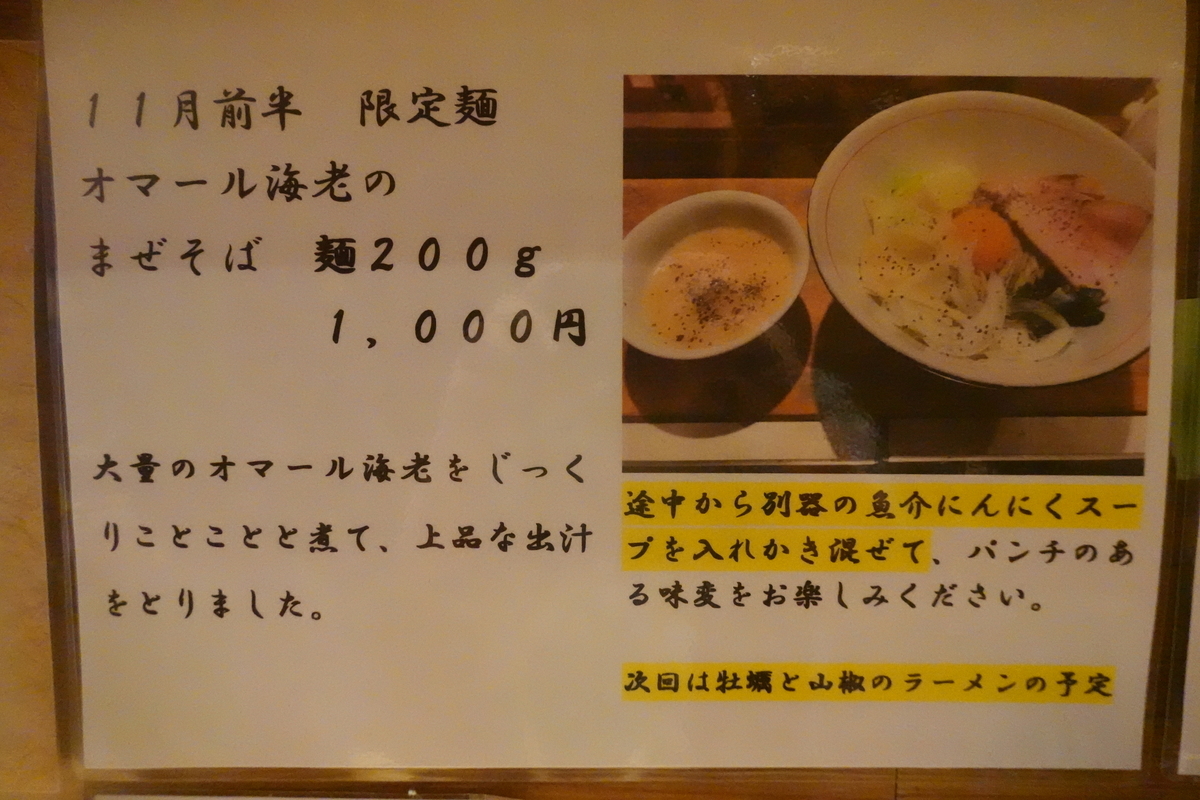 11月前半　限定麺
オマール海老の
まぜそば　麺200g
1,000円
大量のオマール海老をじっく
りことことと煮て、上品な出汁
をとりました。
途中から別器の魚介にんにくスー
プを入れかき混ぜて、パンチのあ
る味変をお楽しみください。
次回は牡蠣と山椒のラーメンの予定